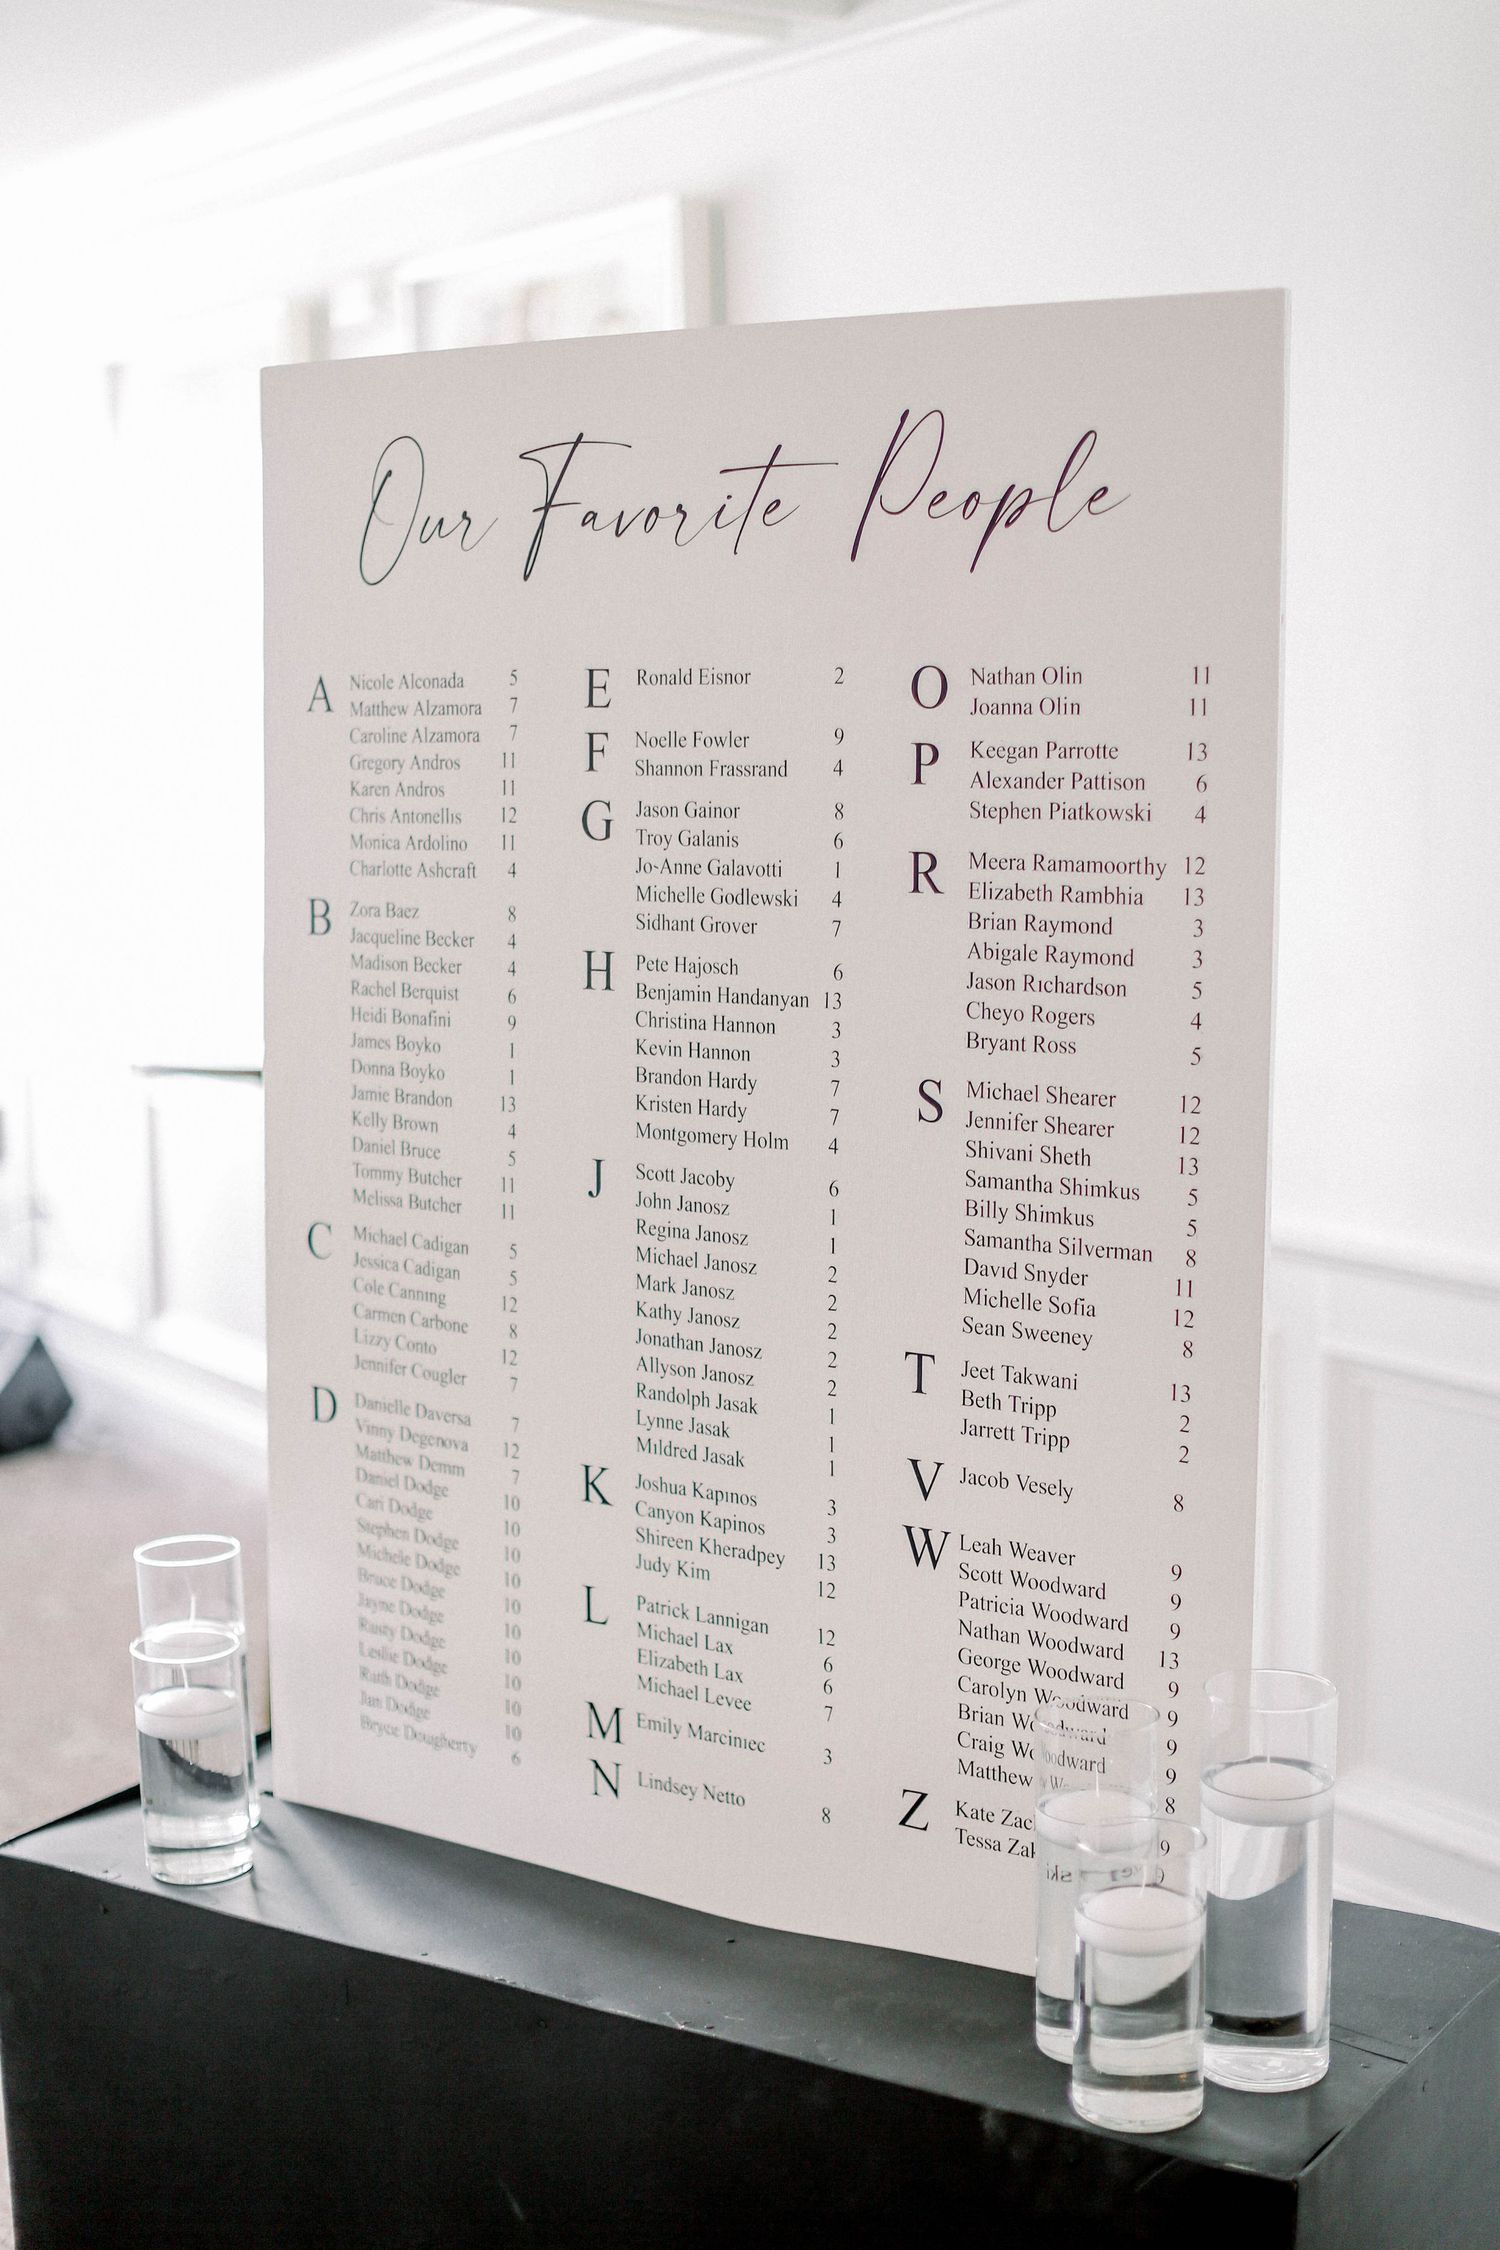 Our Favorite People
A
Nicole Alconada 5
Matthew Alzamora 7
Caroline Alzamora 7
Gregory Andros 11
Karen Andros 11
Chris Antonellis 12
Monica Ardolino 11
Charlotte Ashcraft 4
B
Zora Baez 8
Jacqueline Becker 4
Madison Becker 4
Rachel Berquist 6
Heidi Bonafini 9
James Boyko 1
Donna Boyko 1
Jamie Brandon 13
Kelly Brown 4
Daniel Bruce 5
Tommy Butcher 11
Melissa Butcher 11
C
Michael Cadigan 5
Jessica Cadigan 5
Cole Canning 12
Carmen Carbone 8
Lizzy Conto 12
Jennifer Cougler 7
D
Danielle Daversa 7
Vinny Degenova 12
Matthew Demm 7
Daniel Dodge 10
Cari Dodge 10
Stephen Dodge 10
Michele Dodge 10
Bruce Dodge 10
Jayne Dodge 10
Rusty Dodge 10
Leslie Dodge 10
Ruth Dodge 10
Jan Dodge 10
Bryce Dougherty 6
E
Ronald Eisnor 2
F
Noelle Fowler 9
Shannon Frassrand 4
G
Jason Gainor 8
Troy Galanis 6
Jo-Anne Galavotti 1
Michelle Godlewski 4
Sidhant Grover 7
H
Pete Hajosch 6
Benjamin Handanyan 13
Christina Hannon 3
Kevin Hannon 3
Brandon Hardy 7
Kristen Hardy 7
Montgomery Holm 4
J
Scott Jacoby 6
John Janosz 1
Regina Janosz 1
Michael Janosz 2
Mark Janosz 2
Kathy Janosz 2
Jonathan Janosz 2
Allyson Janosz 2
Randolph Jasak 1
Lynne Jasak 1
Mildred Jasak 1
K
Joshua Kapinos 3
Canyon Kapinos 3
Shireen Kheradpey 13
Judy Kim 12
L
Patrick Lannigan 12
Michael Lax 6
Elizabeth Lax 6
Michael Levee 7
M
Emily Marciniec 3
N
Lindsey Netto 8
O
Nathan Olin 11
Joanna Olin 11
P
Keegan Parrotte 13
Alexander Pattison 6
Stephen Piatkowski 4
R
Meera Ramamoorthy 12
Elizabeth Rambhia 13
Brian Raymond 3
Abigale Raymond 3
Jason Richardson 5
Cheyo Rogers 4
Bryant Ross 5
S
Michael Shearer 12
Jennifer Shearer 12
Shivani Sheth 13
Samantha Shimkus 5
Billy Shimkus 5
Samantha Silverman 8
David Snyder 11
Michelle Sofia 12
Sean Sweeney 8
T
Jeet Takwani 13
Beth Tripp 2
Jarrett Tripp 2
V
Jacob Vesely 8
W
Leah Weaver 9
Scott Woodward 9
Patricia Woodward 9
Nathan Woodward 13
George Woodward 9
Carolyn Woodward 9
Brian Woodward 9
Craig Woodward 9
Matthew 8
Z
Kate 9
Tessa